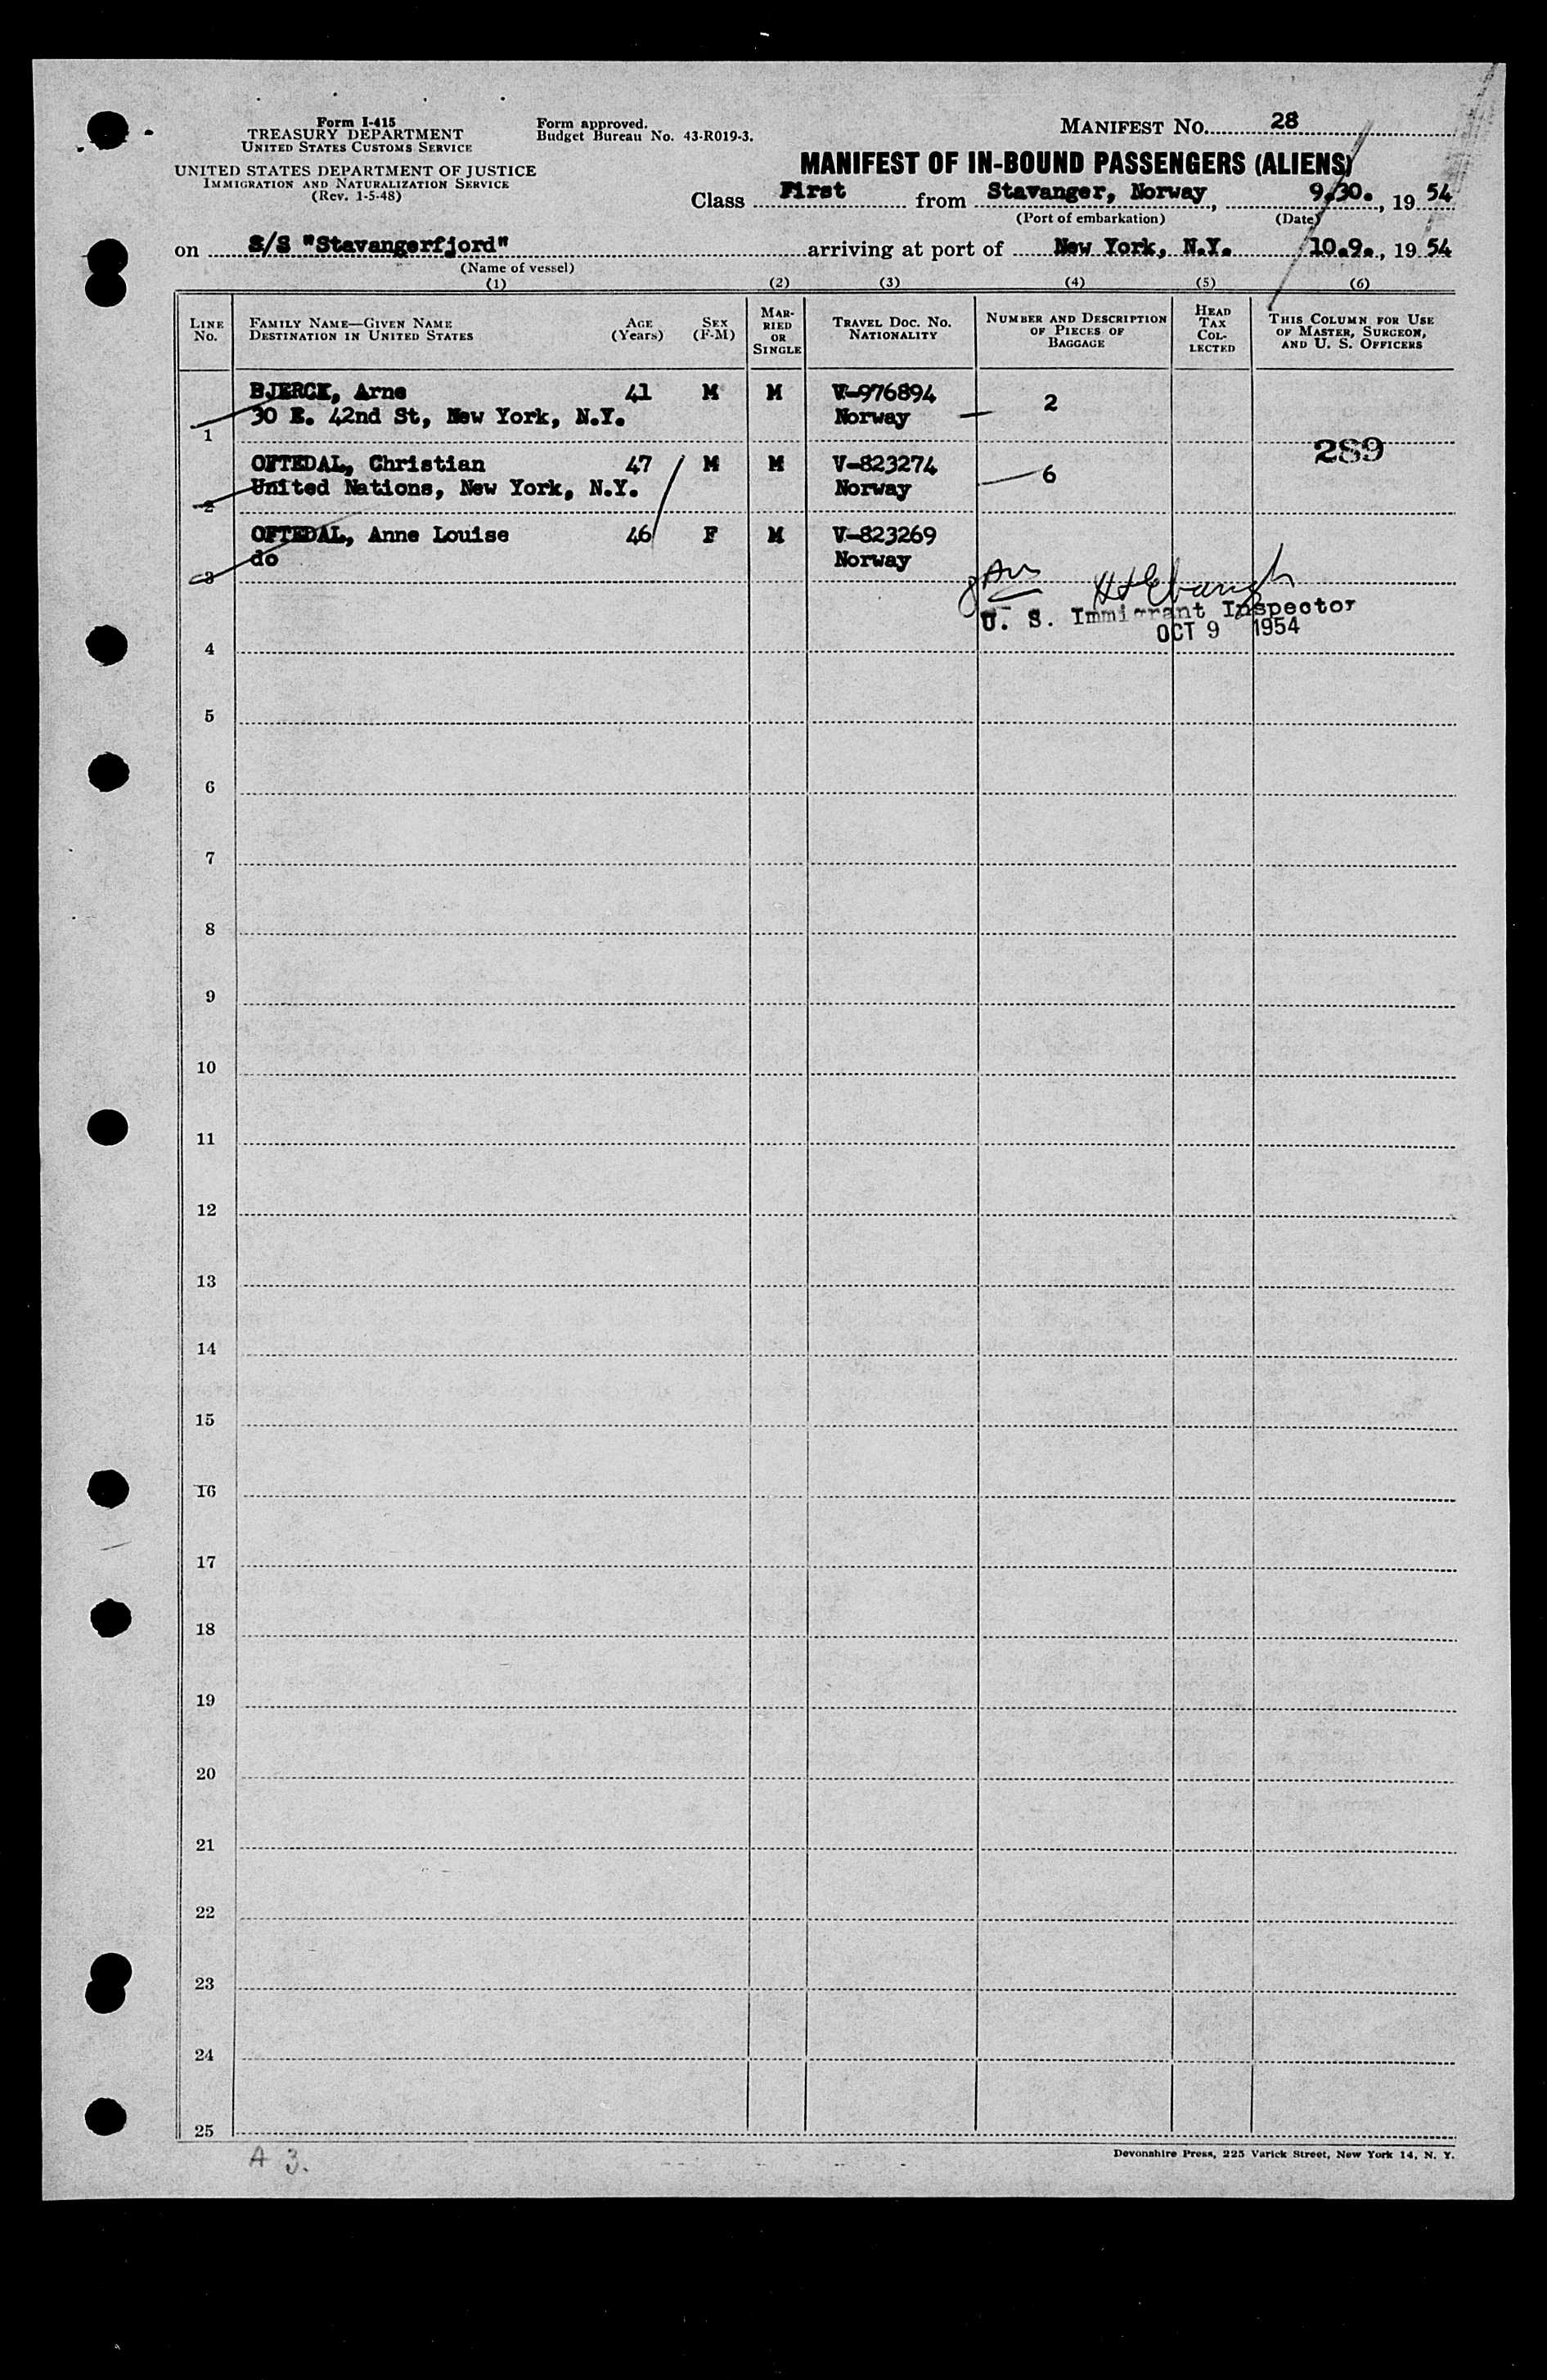 Form I-415
TREASURY DEPARTMENT
UNITED STATES CUSTOMS SERVICE
UNITED STATES DEPARTMENT OF JUSTICE
IMMIGRATION AND NATURALIZATION SERVICE
(Rev. 1-5-48)
Form approved.
Budget Bureau No. 43-R019-3.
MANIFEST NO. 28
MANIFEST OF IN-BOUND PASSENGERS (ALIENS)
Class First from Stavanger, Norway, 9.30., 19 54
(Port of embarkation) (Date)
on S/S "Stavangerfjord" arriving at port of New York, N.Y. 10.9., 19 54
(Name of vessel)
(1) (2) (3) (4) (5) (6)
LINE NO.
FAMILY NAME—GIVEN NAME
DESTINATION IN UNITED STATES
AGE (Years)
SEX (F-M)
MARRIED OR SINGLE
TRAVEL DOC. NO.
NATIONALITY
NUMBER AND DESCRIPTION OF PIECES OF BAGGAGE
HEAD TAX COLLECTED
THIS COLUMN FOR USE OF MASTER, SURGEON, AND U. S. OFFICERS
BJERCK, Arne 41 M M V-976894
1 30 E. 42nd St, New York, N.Y. Norway 2
289
OFTEDAL, Christian 47 M M V-823274
2 United Nations, New York, N.Y. Norway 6
OFTEDAL, Anne Louise 46 F M V-823269
3 do Norway
U. S. Immigrant Inspector
OCT 9 1954
4
5
6
7
8
9
10
11
12
13
14
15
16
17
18
19
20
21
22
23
24
25
A 3.
Devonshire Press, 225 Varick Street, New York 14, N. Y.